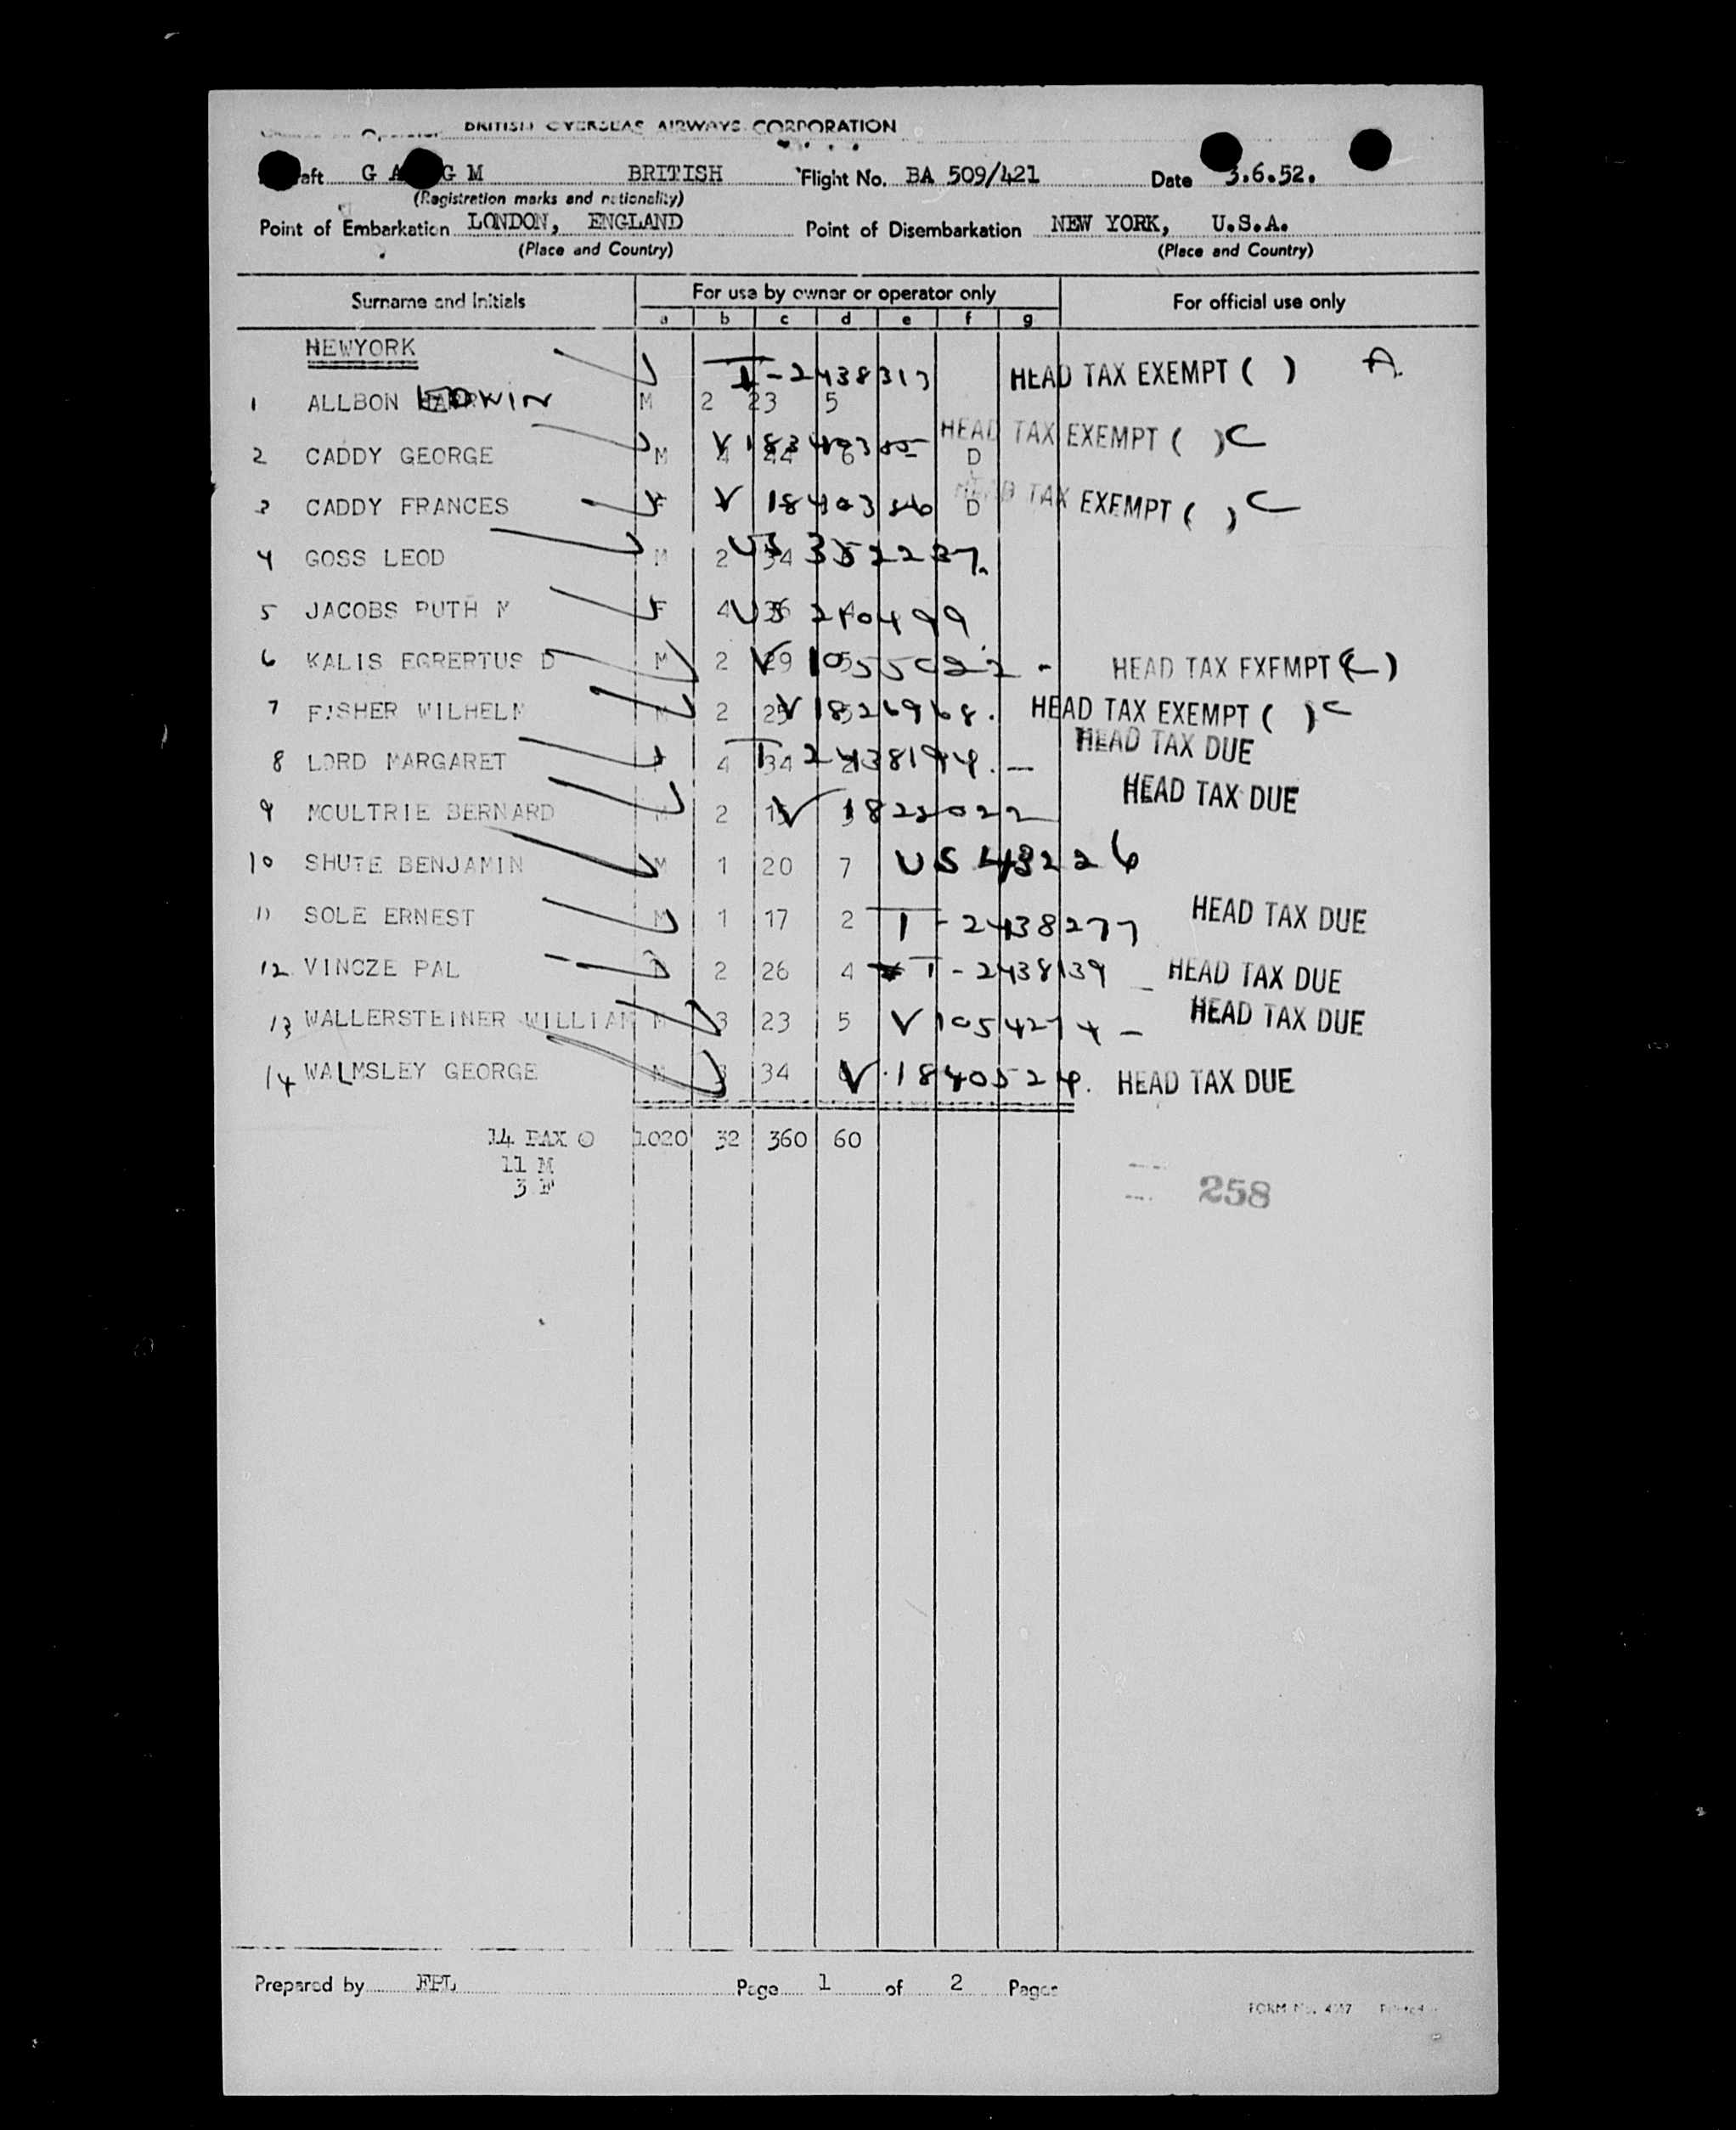 BRITISH OVERSEAS AIRWAYS CORPORATION
aft G A G M BRITISH Flight No. BA 509/421 Date 3.6.52.
(Registration marks and nationality)
Point of Embarkation LONDON, ENGLAND Point of Disembarkation NEW YORK, U.S.A.
(Place and Country) (Place and Country)
Surname and Initials For use by owner or operator only For official use only
a b c d e f g
NEWYORK
T-2438313 HEAD TAX EXEMPT ( ) A.
1 ALLBON EDWIN M 2 23 5
2 CADDY GEORGE M 4 44 6 D HEAD TAX EXEMPT ( ) C
3 CADDY FRANCES F V 1840386 D HEAD TAX EXEMPT ( ) C
4 GOSS LEOD M 2 34 US 352237.
5 JACOBS RUTH M F 4 36 4 US 210499
6 KALIS EGRERTUS D M 2 29 5 V 1055022 - HEAD TAX EXEMPT (C)
7 FISHER WILHELM M 2 25 V 1826968. HEAD TAX EXEMPT ( ) C
8 LORD MARGARET F 4 34 T 2438194. — HEAD TAX DUE
9 MOULTRIE BERNARD M 2 V 1822022 HEAD TAX DUE
10 SHUTE BENJAMIN M 1 20 7 US 48226
11 SOLE ERNEST M 1 17 2 T-2438277 HEAD TAX DUE
12 VINCZE PAL M 2 26 4 T-2438139 HEAD TAX DUE
13 WALLERSTEINER WILLIAM M 3 23 5 V 1054274 — HEAD TAX DUE
14 WALMSLEY GEORGE M 3 34 V.1840524. HEAD TAX DUE
14 PAX O 1020 32 360 60
11 M
3 F
258
Prepared by FPL Page 1 of 2 Pages
FORM No.